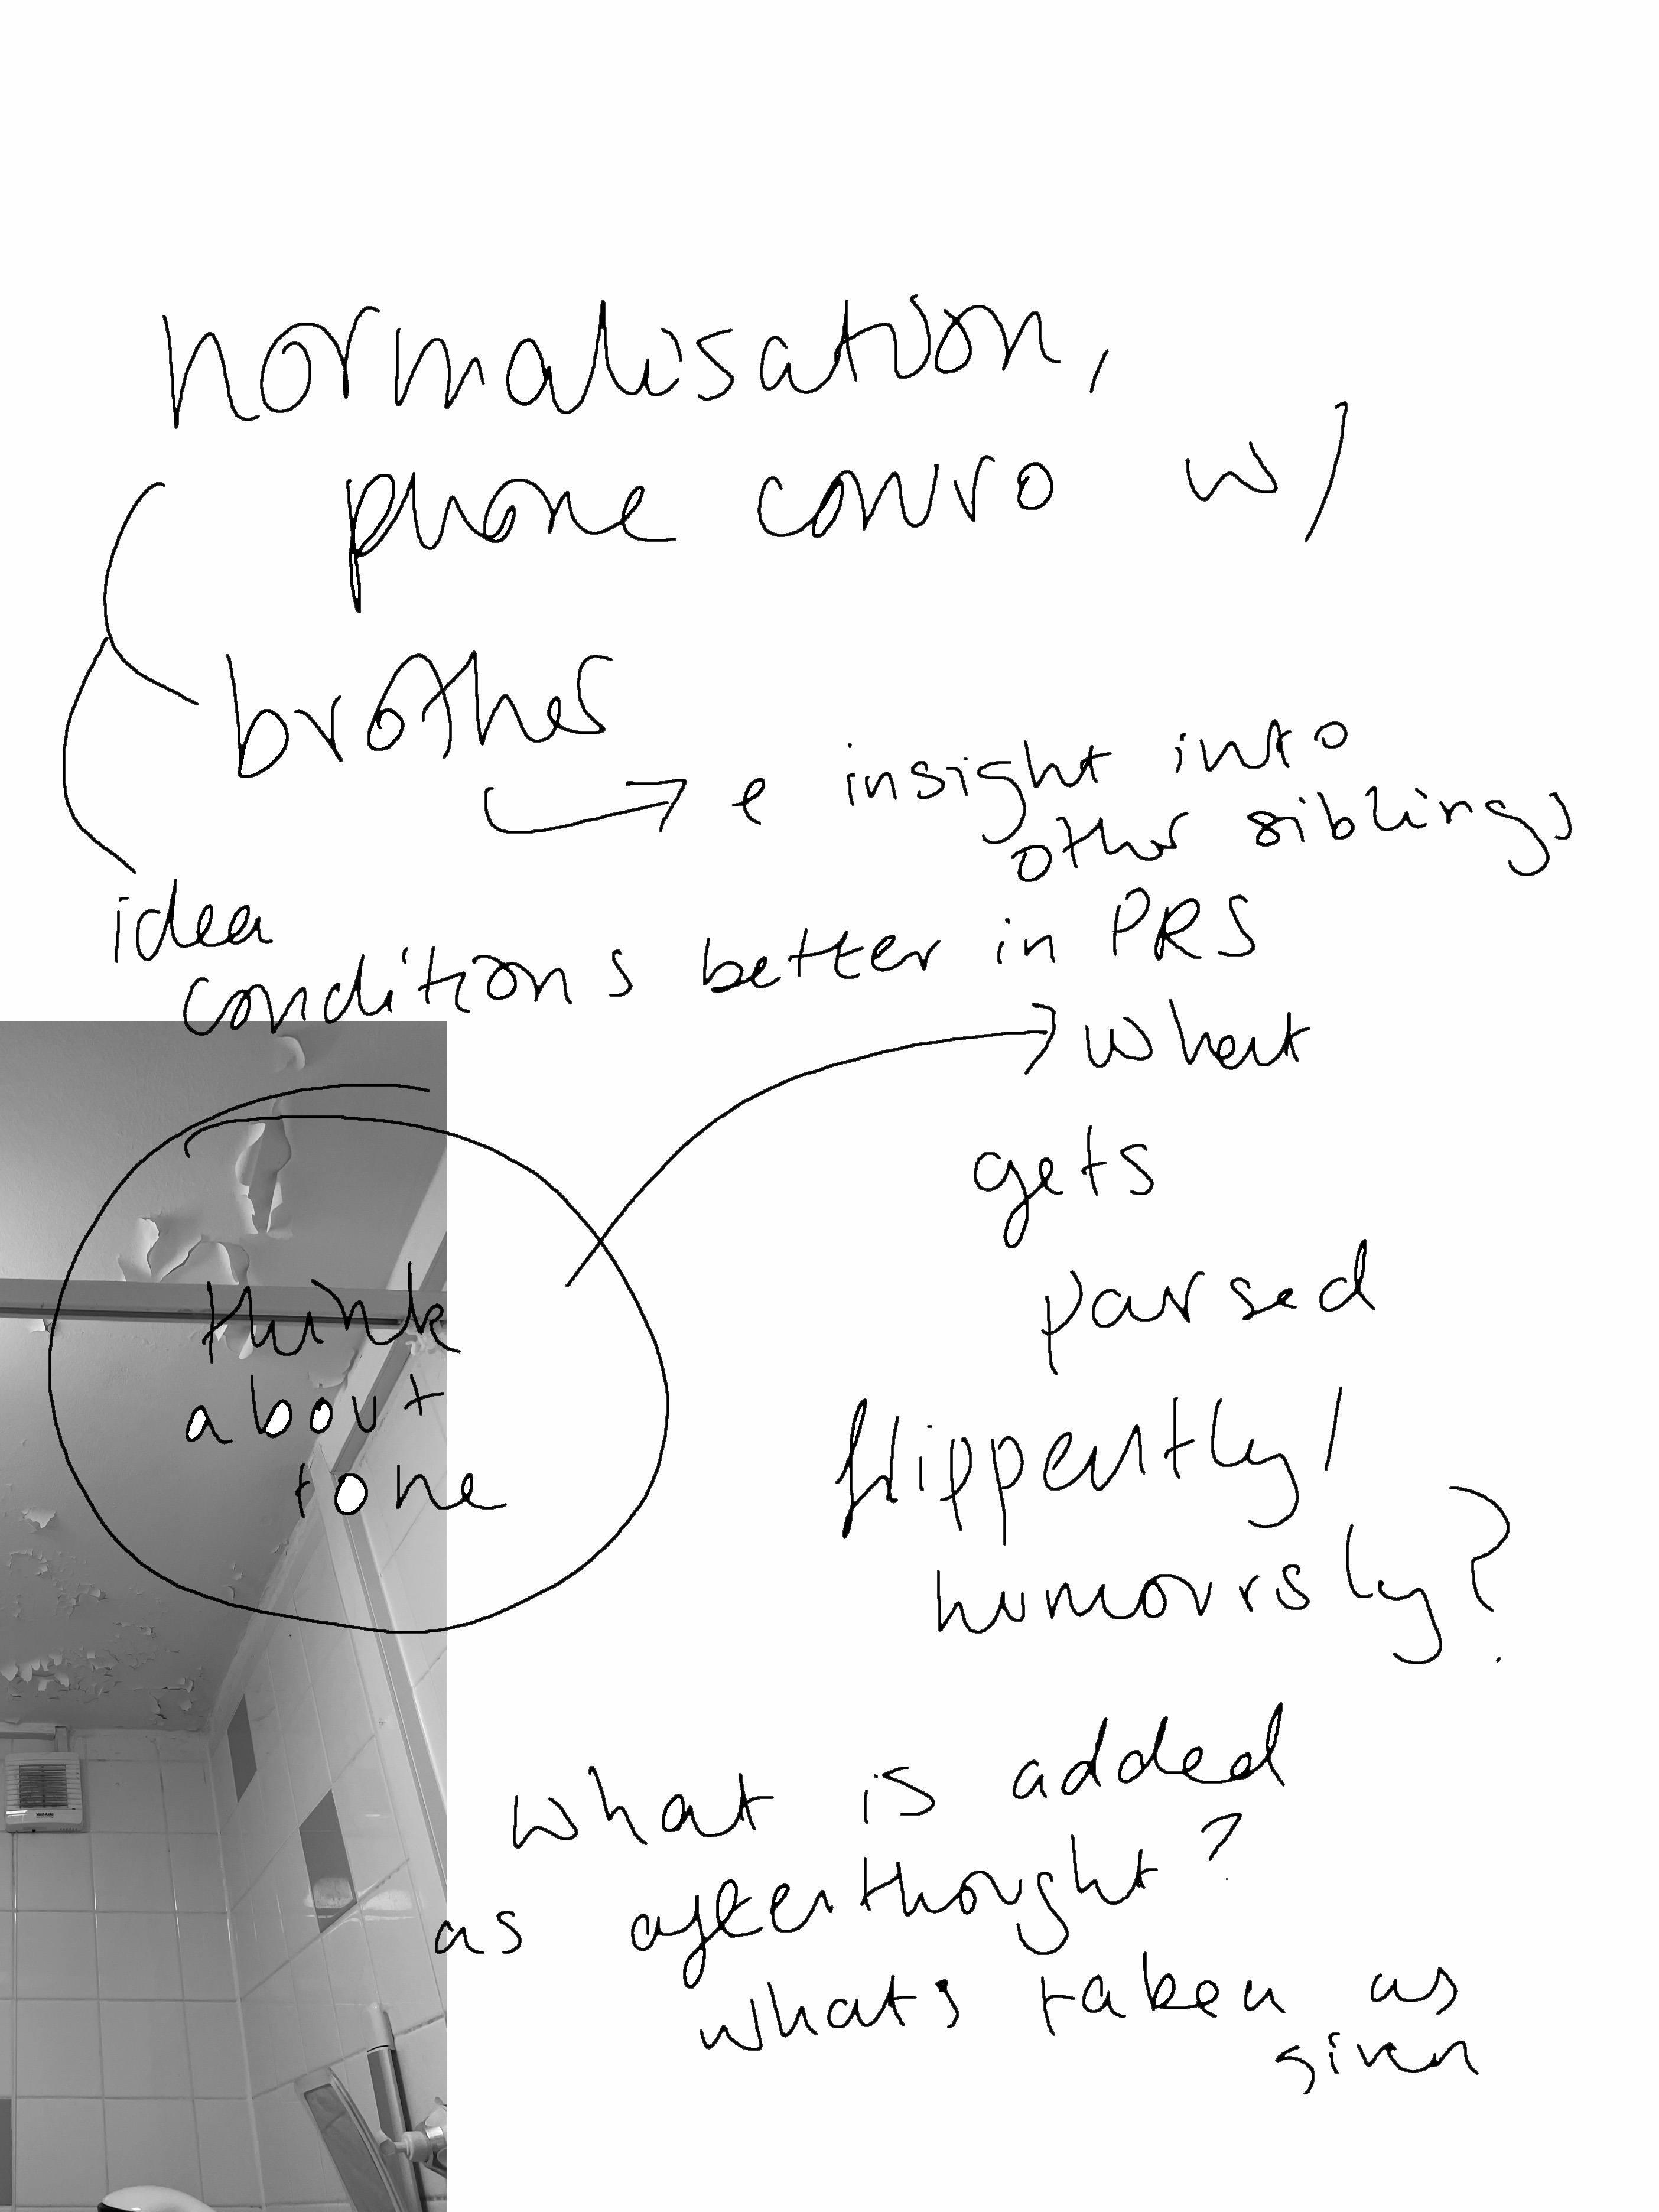 normalisation,
phone convo w/
brother
e insight into
other siblings
idea
conditions better in PRS
think
about
tone
what
gets
parsed
flippently/
humoursly?
what is added
as afterthought?
whats taken as
given